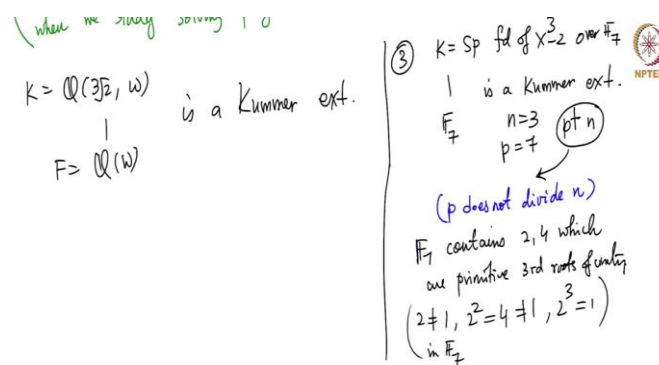 (when we study solving
K = Q(3√2, ω) is a Kummer ext.
|
F = Q(ω)
③ K = Sp fd of x³-2 over F₇
| is a Kummer ext.
F₇ n=3 p∤n
p=7
(p does not divide n)
F₇ contains 2, 4 which
are primitive 3rd roots of unity
(2≠1, 2²=4≠1, 2³=1)
in F₇
NPTEL